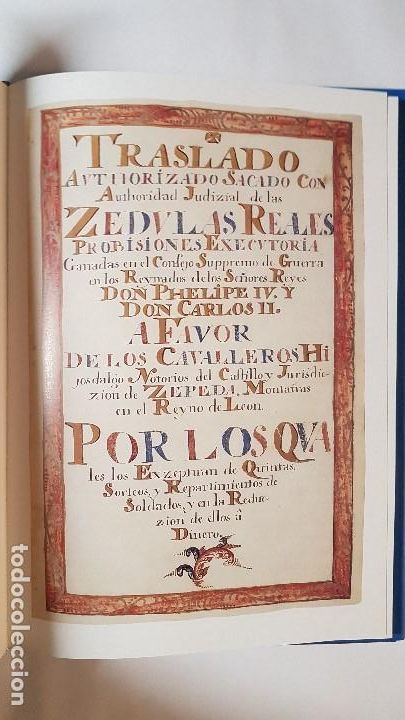 TRASLADO
AVTHORIZADO SACADO CON
Authoridad Judizial de las
ZEDVLAS REALES
PROBISIONES EXECVTORIA
Ganadas en el Consejo Suppremo de Guerra
en los Reynados de los Señores Reyes
DON PHELIPE IV. Y
DON CARLOS II.
A FAVOR
DE LOS CAVALLEROS HI
josdalgo Notorios del Castillo y Jurisdic-
zion de ZEPEDA, Montañas
en el Reyno de Leon.
POR LOS QVA
les los Exzeptuan de Quintas,
Sorteos, y Repartimientos de
Soldados, y en la Reduc-
zion de ellos â
Dinero.
todocoleccion.net